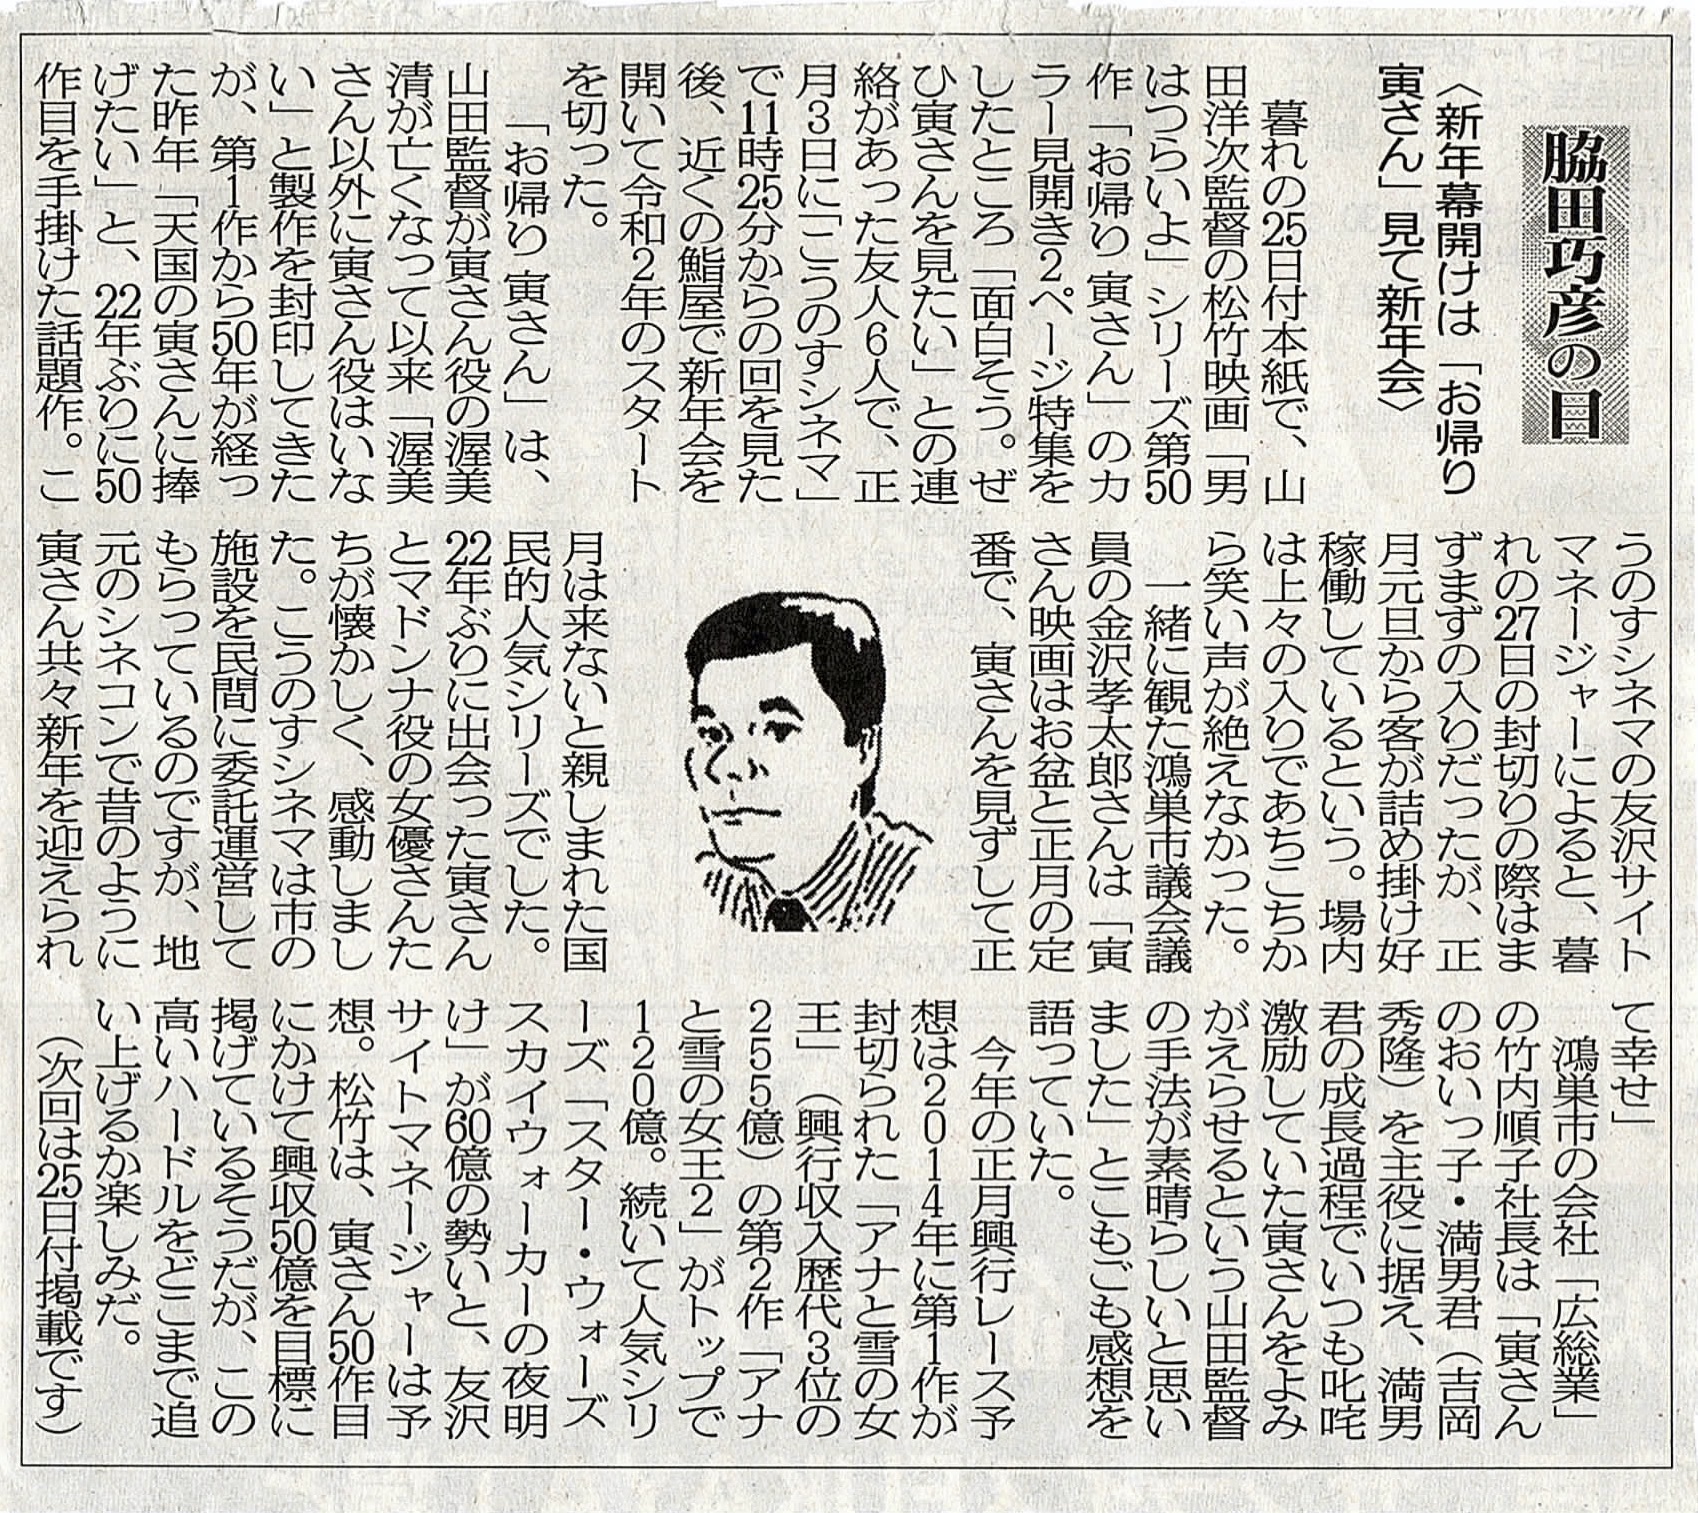 脇田巧彦の目
〈新年幕開けは「お帰り
寅さん」見て新年会〉
暮れの25日付本紙で、山
田洋次監督の松竹映画「男
はつらいよ」シリーズ第50
作「お帰り 寅さん」のカ
ラー見開き2ページ特集を
したところ「面白そう。ぜ
ひ寅さんを見たい」との連
絡があった友人6人で、正
月3日に「こうのすシネマ」
で11時25分からの回を見た
後、近くの鮨屋で新年会を
開いて令和2年のスタート
を切った。
「お帰り 寅さん」は、
山田監督が寅さん役の渥美
清が亡くなって以来「渥美
さん以外に寅さん役はいな
い」と製作を封印してきた
が、第1作から50年が経っ
た昨年「天国の寅さんに捧
げたい」と、22年ぶりに50
作目を手掛けた話題作。こ
うのすシネマの友沢サイト
マネージャーによると、暮
れの27日の封切りの際はま
ずまずの入りだったが、正
月元旦から客が詰め掛け好
稼働しているという。場内
は上々の入りであちこちか
ら笑い声が絶えなかった。
一緒に観た鴻巣市議会議
員の金沢孝太郎さんは「寅
さん映画はお盆と正月の定
番で、寅さんを見ずして正
月は来ないと親しまれた国
民的人気シリーズでした。
22年ぶりに出会った寅さん
とマドンナ役の女優さんた
ちが懐かしく、感動しまし
た。こうのすシネマは市の
施設を民間に委託運営して
もらっているのですが、地
元のシネコンで昔のように
寅さん共々新年を迎えられ
て幸せ」
鴻巣市の会社「広総業」
の竹内順子社長は「寅さん
のおいっ子・満男君（吉岡
秀隆）を主役に据え、満男
君の成長過程でいつも叱咤
激励していた寅さんをよみ
がえらせるという山田監督
の手法が素晴らしいと思い
ました」とこもごも感想を
語っていた。
今年の正月興行レース予
想は2014年に第1作が
封切られた「アナと雪の女
王」（興行収入歴代3位の
255億）の第2作「アナ
と雪の女王2」がトップで
120億。続いて人気シリ
ーズ「スター・ウォーズ
スカイウォーカーの夜明
け」が60億の勢いと、友沢
サイトマネージャーは予
想。松竹は、寅さん50作目
にかけて興収50億を目標に
掲げているそうだが、この
高いハードルをどこまで追
い上げるか楽しみだ。
（次回は25日付掲載です）